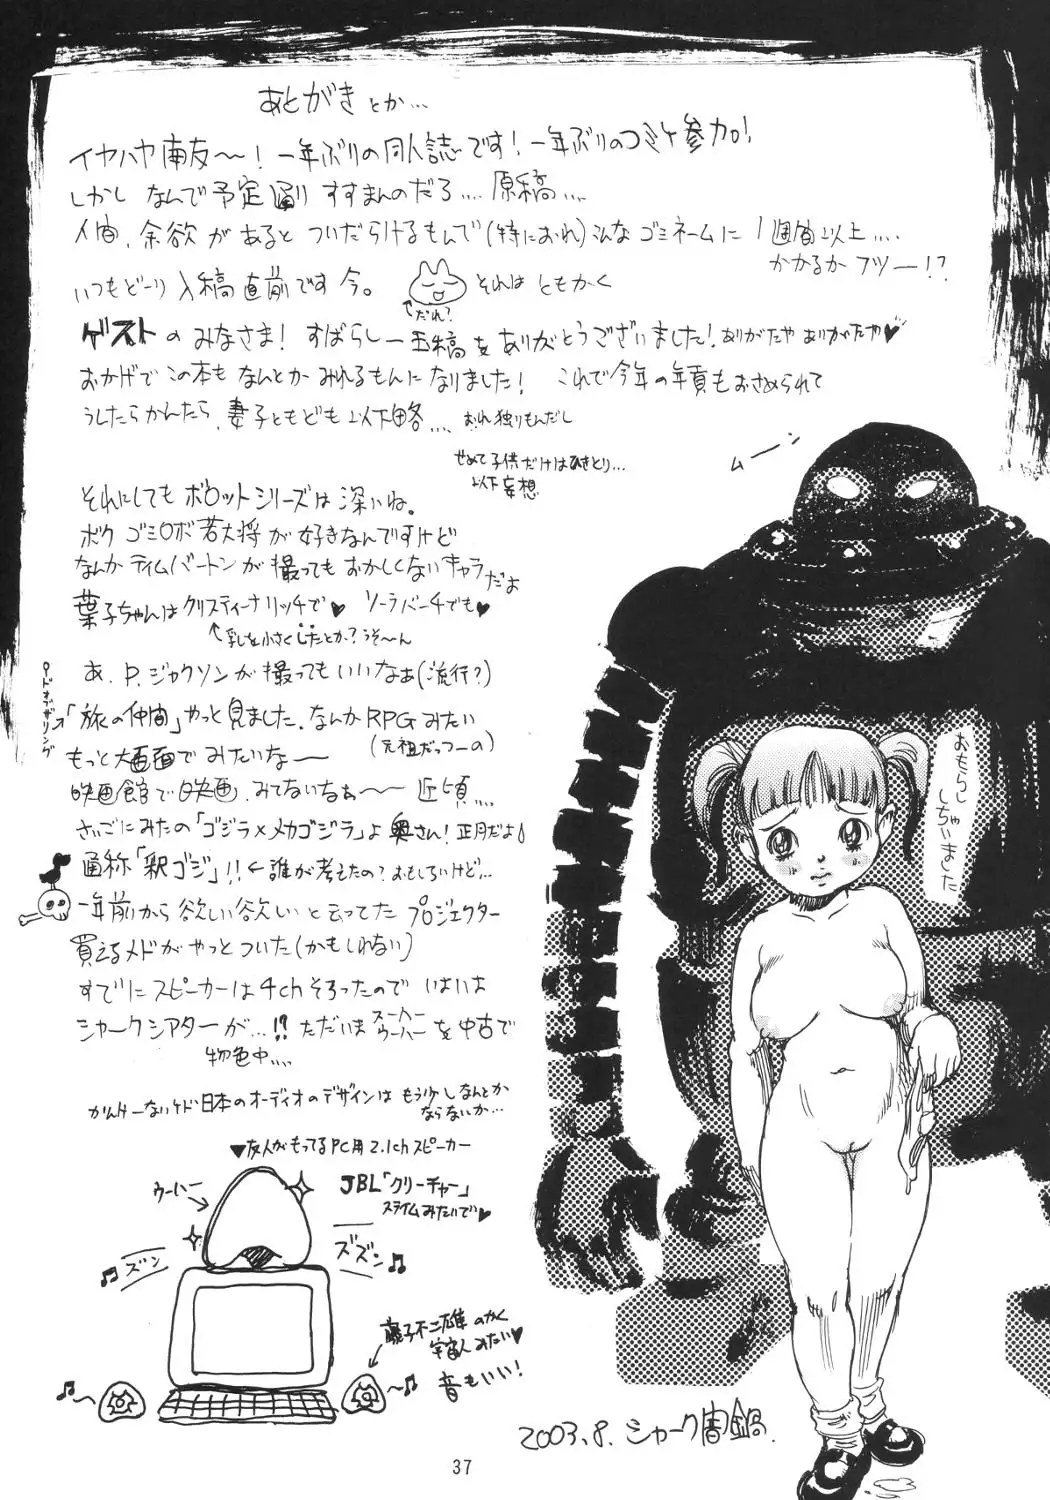 あとがきとか…
イヤハヤ南友〜！一年ぶりの同人誌です！一年ぶりの 参加！
しかし なんで予定通り すすまんのだろ…原稿…
人間、余欲があると ついだらけるもんで(特におれ)こんな ゴミネームに 1週間以上…
かかるか フツー!?
いつもどーり 入稿直前です 今。
それは ともかく
だれ？
ゲストのみなさま！すばらしー玉稿をありがとうございました！ありがたや ありがたや♥
おかげで この本も なんとか みれるもんに なりました！ これで今年の年貢もおさめられて
うしたらかんたら、妻子ともども 以下略… おれ独りもんだし
せめて子供だけはひきとり…
以下妄想
ムーン
それにしても ボロットシリーズは深いね。
ボク ゴミロボ若大将が好きなんですけど
なんか ティムバートンが 撮っても おかしくないキャラだよ
葉子ちゃんは クリスティーナリッチで♥ ソーラバーチでも♥
乳を小さくしたとか？うそ〜ん
あ、P.ジャクソンが撮ってもいいなぁ(流行？)
ロードオブザリング
「旅の仲間」やっと見ました、なんかRPGみたい
(元祖だっつーの)
もっと大画面で みたいな〜
映画館で映画、みてないなぁ〜 近頃…
さいごにみたの「ゴジラ×メカゴジラ」よ 奥さん！正月だよ！
通称「釈ゴジ」!!←誰が考えたの？おもしろいけど…
一年前から 欲しい欲しいと云ってた プロジェクター
買えるメドがやっとついた(かもしれない)
すでにスピーカーは4chそろったので いよいよ
シャークシアターが…!? ただいま スーパーウーハーを中古で
物色中…
かんけーないケド 日本のオーディオのデザインは もう少しなんとか
ならないか…
▼友人がもってるPC用2.1chスピーカー
ウーハー
JBL「クリーチャー」
スライムみたいで♥
ズズン
ズン
藤子不二雄のかく
宇宙人みたい♥
音もいい！
おもらし
しちゃいました
2003.8.シャーク闇鍋
37